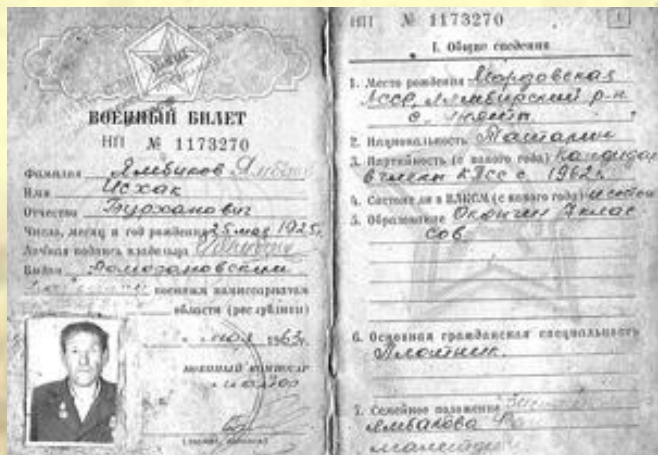 ВОЕННЫЙ БИЛЕТ
НП № 1173270
Фамилия Ямбиков
Имя Исхак
Отчество Бурханович
Число, месяц и год рождения 25 мая 1925г.
Личная подпись владельца
Выдан
военным комиссариатом
области (республики)
мая 1963г.
ВОЕННЫЙ КОМИССАР
майор
НП № 1173270 1
I. Общие сведения
1. Место рождения Мордовская
АССР, Лямбирский р-н
с.
2. Национальность Татарин
3. Партийность (с какого года) Кандидат
в члены КПСС с 1962г.
4. Состоял ли в ВЛКСМ (с какого года)
5. Образование Окончил 7 клас
сов
6. Основная гражданская специальность
Плотник.
7. Семейное положение